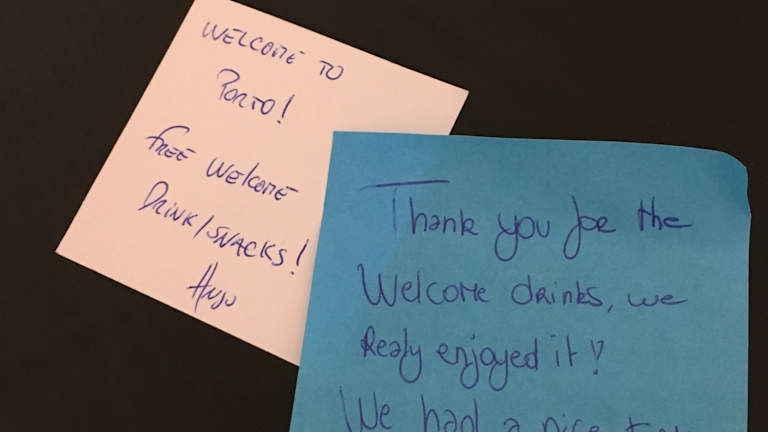 WELCOME TO
PORTO!
FREE WELCOME
DRINK/SNACKS!
Hugo
Thank you foe the
Welcome drinks, we
Realy enjoyed it!
We had a nice